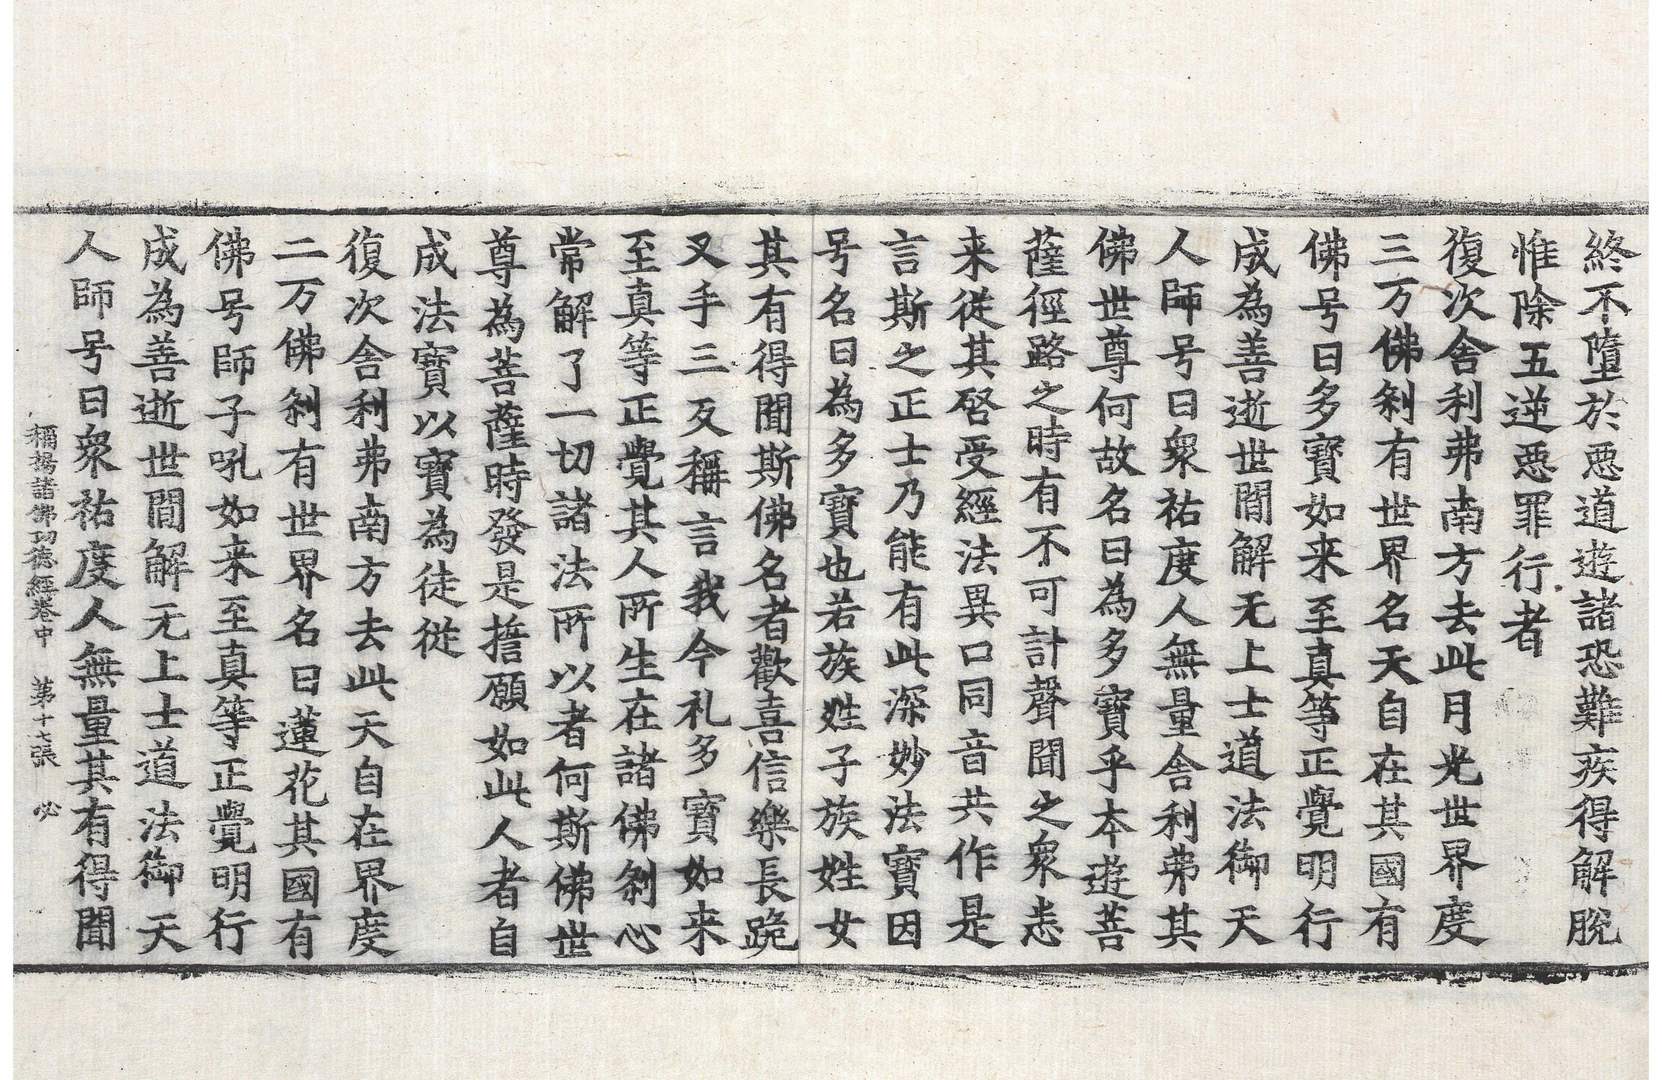 終不墮於惡道遊諸恐難疾得解脫
惟除五逆惡罪行者
復次舍利弗南方去此月光世界度
三万佛剎有世界名天自在其國有
佛号曰多寶如来至真等正覺明行
成為善逝世間解无上士道法御天
人師号曰衆祐度人無量舍利弗其
佛世尊何故名曰為多寶乎本遊菩
薩徑路之時有不可計聲聞之衆悉
来從其啓受經法異口同音共作是
言斯之正士乃能有此深妙法寶因
号名曰為多寶也若族姓子族姓女
其有得聞斯佛名者歡喜信樂長跪
叉手三反稱言我今礼多寶如来
至真等正覺其人所生在諸佛剎心
常解了一切諸法所以者何斯佛世
尊為菩薩時發是擔願如此人者自
成法寶以寶為徒從
復次舍利弗南方去此天自在界度
二万佛剎有世界名曰蓮花其國有
佛号師子吼如来至真等正覺明行
成為善逝世間解无上士道法御天
人師号曰衆祐度人無量其有得聞
稱揚諸佛功德經卷中　第十七張　必